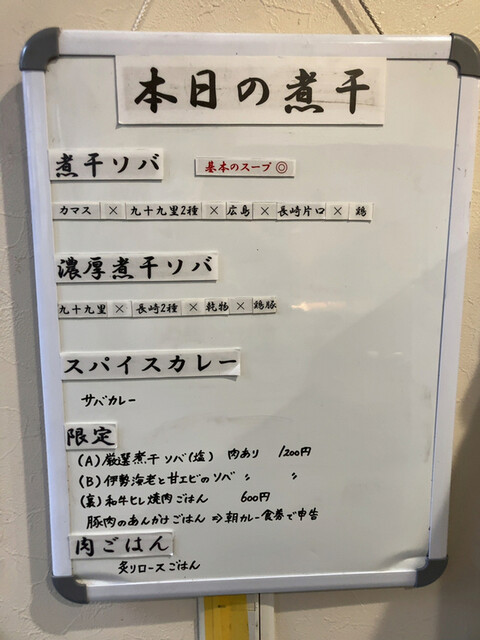 本日の煮干
煮干ソバ 基本のスープ◎
カマス × 九十九里2種 × 広島 × 長崎片口 × 鶏
濃厚煮干ソバ
九十九里 × 長崎2種 × 乾物 × 鶏豚
スパイスカレー
サバカレー
限定
(A) 厳選煮干ソバ(塩) 肉あり 1200円
(B) 伊勢海老と甘エビのソバ 〃 〃
(裏) 和牛ヒレ焼肉ごはん 600円
豚肉のあんかけごはん ⇒ 朝カレー食券で申告
肉ごはん
炙りロースごはん